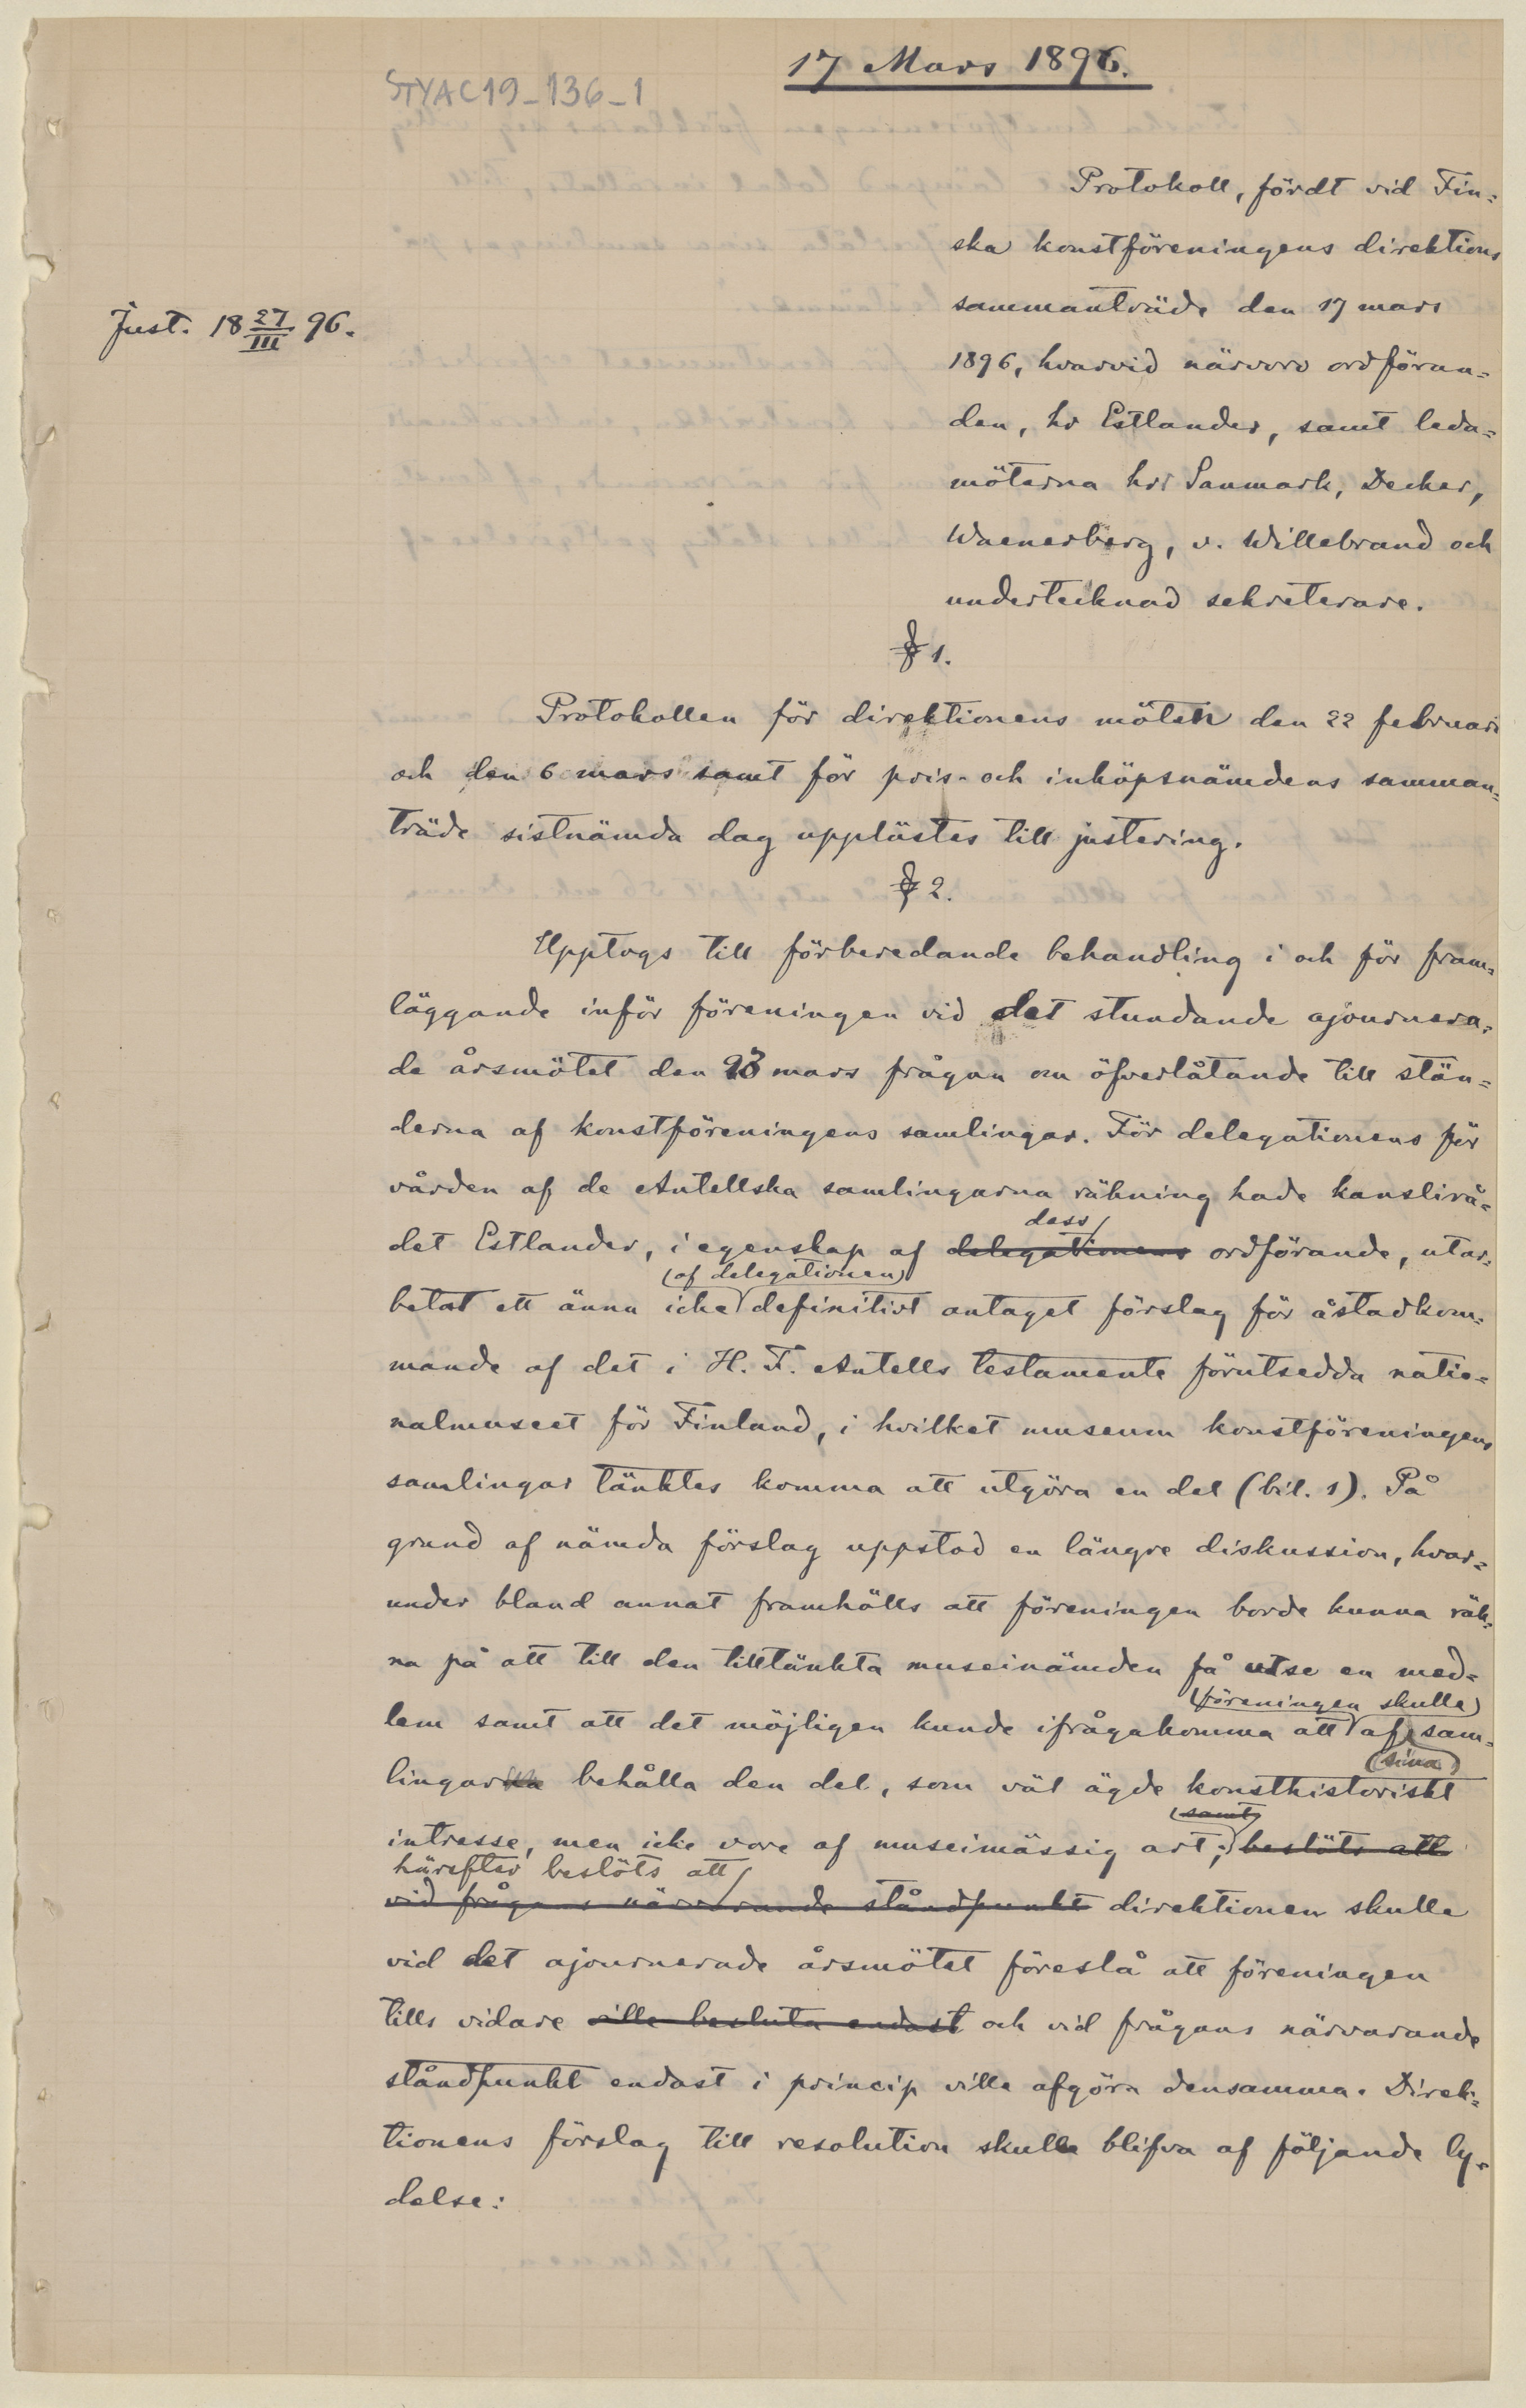 17 Mars 1896.
STYAC19-136-1
Protokoll, fördt vid Fin=
ska konstföreningens direktions
sammanträde den 17 mars
Just. 18 27/III 96.
1896, hvarvid närvoro ordföran=
den, hr Estlander, samt leda=
möterna hrr Sanmark, Decker,
Waenerberg, v. Willebrand och
undertecknad sekreterare.
§ 1.
Protokollen för direktionens möten den 22 februari
och den 6 mars samt för pris- och inköpsnämdens samman=
träde sistnämda dag upplästes till justering.
§ 2.
Upptogs till förberedande behandling i och för fram=
läggande inför föreningen vid det stundande ajournera=
de årsmötet den 23 mars frågan om öfverlåtande till stän=
derna af konstföreningens samlingar. För delegationens för
vården af de Antellska samlingarna räkning hade kanslirå=
dess
det Estlander, i egenskap af delegationens ordförande, utar=
(af delegationen)
betat ett ännu icke definitivt antaget förslag för åstadkom=
mande af det i H. F. Antells testamente förutsedda natio=
nalmuseet för Finland, i hvilket museum konstföreningens
samlingar tänktes komma att utgöra en del (bil. 1). På
grund af nämda förslag uppstod en längre diskussion, hvar=
under bland annat framhölls att föreningen borde kunna räk=
na på att till den tilltänkta museinämden få utse en med=
(föreningen skulle)
lem samt att det möjligen kunde ifrågakomma att af sam=
(sina)
lingarna behålla den del, som väl ägde konsthistoriskt
(samt)
intresse, men icke vore af museimässig art; beslöts att
härefter beslöts att
vid frågans närvarande ståndpunkt direktionen skulle
vid det ajournerade årsmötet föreslå att föreningen
tills vidare ville besluta endast och vid frågans närvarande
ståndpunkt endast i princip ville afgöra densamma. Direk=
tionens förslag till resolution skulle blifva af följande ly=
delse: